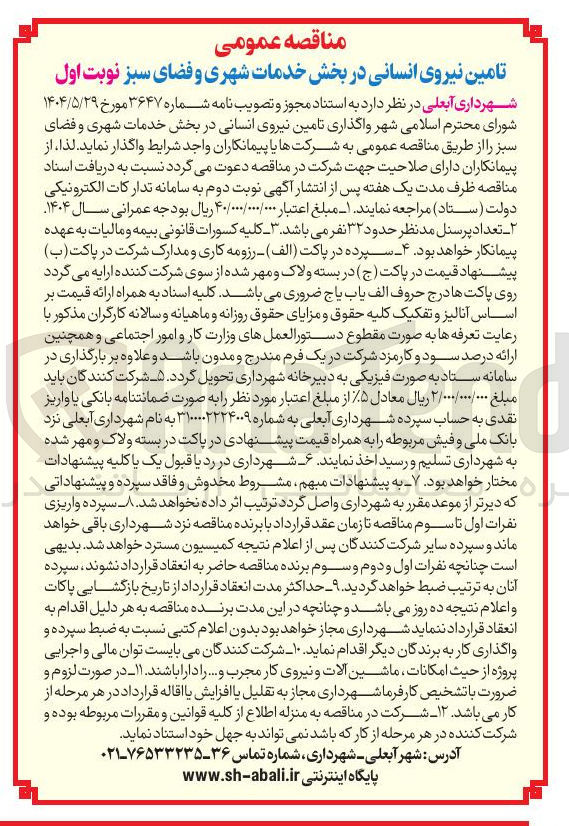 مناقصه عمومی
تامین نیروی انسانی در بخش خدمات شهری و فضای سبز نوبت اول
شهرداری آبعلی در نظر دارد به استناد مجوز و تصویب نامه شماره ۳۶۴۷ مورخ ۱۴۰۴/۵/۲۹
شورای محترم اسلامی شهر واگذاری تامین نیروی انسانی در بخش خدمات شهری و فضای
سبز را از طریق مناقصه عمومی به شرکت ها یا پیمانکاران واجد شرایط واگذار نماید. لذا، از
پیمانکاران دارای صلاحیت جهت شرکت در مناقصه دعوت می گردد نسبت به دریافت اسناد
مناقصه ظرف مدت یک هفته پس از انتشار آگهی نوبت دوم به سامانه تدارکات الکترونیکی
دولت (ستاد) مراجعه نمایند. ۱_ مبلغ اعتبار ۴۰/۰۰۰/۰۰۰/۰۰۰ ریال بودجه عمرانی سال ۱۴۰۴.
۲_ تعداد پرسنل مدنظر حدود ۳۲ نفر می باشد. ۳_ کلیه کسورات قانونی بیمه و مالیات به عهده
پیمانکار خواهد بود. ۴_ سپرده در پاکت (الف) _ رزومه کاری و مدارک شرکت در پاکت (ب)
پیشنهاد قیمت در پاکت (ج) در بسته ولاک و مهر شده از سوی شرکت کننده ارایه می گردد
روی پاکت ها درج حروف الف یا ب یا ج ضروری می باشد. کلیه اسناد به همراه ارائه قیمت بر
اساس آنالیز و تفکیک کلیه حقوق و مزایای حقوق روزانه و ماهیانه و سالانه کارگران مذکور با
رعایت تعرفه ها به صورت مقطوع دستورالعمل های وزارت کار و امور اجتماعی و همچنین
ارائه درصد سود و کارمزد شرکت در یک فرم مندرج و مدون باشد و علاوه بر بارگذاری در
سامانه ستاد به صورت فیزیکی به دبیرخانه شهرداری تحویل گردد. ۵_ شرکت کنندگان باید
مبلغ ۲/۰۰۰/۰۰۰/۰۰۰ ریال معادل ۵٪ از مبلغ اعتبار مورد نظر را به صورت ضمانتنامه بانکی یا واریز
نقدی به حساب سپرده شهرداری آبعلی به شماره ۳۱۰۰۰۰۲۲۲۴۰۰۹ به نام شهرداری آبعلی نزد
بانک ملی و فیش مربوطه را به همراه قیمت پیشنهادی در پاکت در بسته ولاک و مهر شده
به شهرداری تسلیم و رسید اخذ نمایند. ۶_ شهرداری در رد یا قبول یک یا کلیه پیشنهادات
مختار خواهد بود. ۷_ به پیشنهادات مبهم ، مشروط مخدوش و فاقد سپرده و پیشنهاداتی
که دیرتر از موعد مقرر به شهرداری واصل گردد ترتیب اثر داده نخواهد شد. ۸_ سپرده واریزی
نفرات اول تا سوم مناقصه تا زمان عقد قرارداد با برنده مناقصه نزد شهرداری باقی خواهد
ماند و سپرده سایر شرکت کنندگان پس از اعلام نتیجه کمیسیون مسترد خواهد شد. بدیهی
است چنانچه نفرات اول و دوم و سوم برنده مناقصه حاضر به انعقاد قرارداد نشوند، سپرده
آنان به ترتیب ضبط خواهد گردید. ۹_ حداکثر مدت انعقاد قرارداد از تاریخ بازگشایی پاکات
و اعلام نتیجه ده روز می باشد و چنانچه در این مدت برنده مناقصه به هر دلیل اقدام به
انعقاد قرارداد ننماید شهرداری مجاز خواهد بود بدون اعلام کتبی نسبت به ضبط سپرده و
واگذاری کار به برندگان دیگر اقدام نماید. ۱۰_ شرکت کنندگان می بایست توان مالی و اجرایی
پروژه از حیث امکانات ، ماشین آلات و نیروی کار مجرب و... را دارا باشند. ۱۱_ در صورت لزوم و
ضرورت با تشخیص کارفرما شهرداری مجاز به تقلیل یا افزایش یا اقاله قرارداد در هر مرحله از
کار می باشد. ۱۲_ شرکت در مناقصه به منزله اطلاع از کلیه قوانین و مقررات مربوطه بوده و
شرکت کننده در هر مرحله از کار که باشد نمی تواند به جهل خود استناد نماید.
آدرس: شهر آبعلی_ شهرداری، شماره تماس ۳۶_۷۶۵۳۳۲۳۵_۰۲۱
پایگاه اینترنتی www.sh-abali.ir